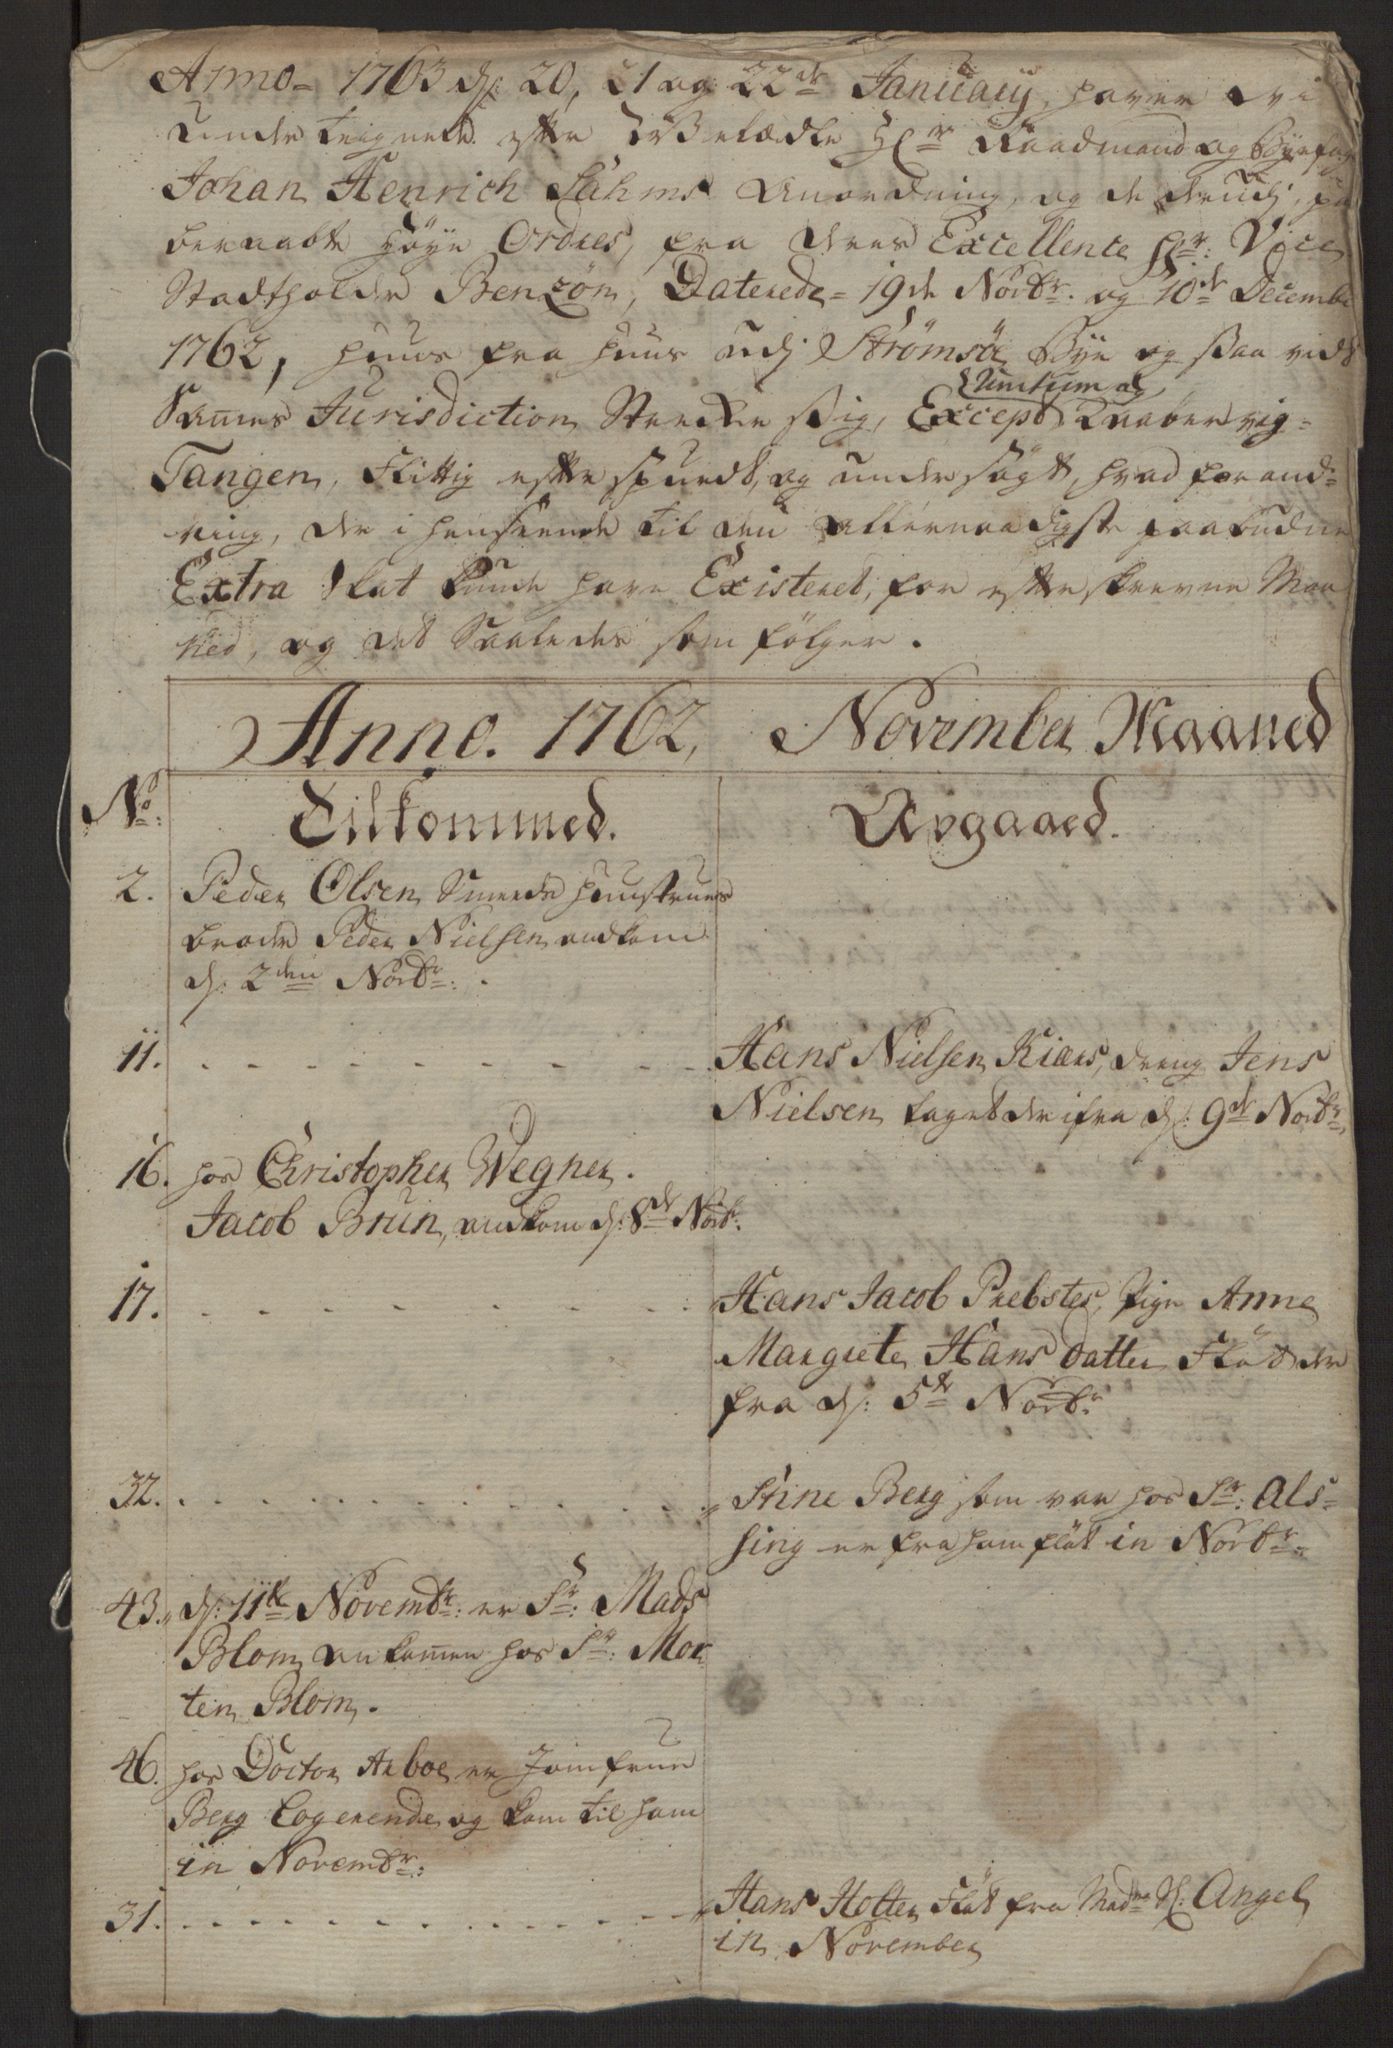 Anno 1763 d: 20, 21 og 22de Januarij, haver vi
under teignede efter Hr Raadmand og Byefog
Johan Henrich Sahms Anordning, og de derudj, paa
beraabte höye Ordres, fra deres Excellence Hr: Vice
Stadtholder Benzön, Daterede 19de Novbr. og 10de Decembr
1762, huus fra huus udj Strömsöe Bye og saa vidt
Sammes Jurisdiction Strecker sig, Except
Tangen, Flittig efter spurdt, og undersögt, hvad forand-
ring, der i henseende til den allernaadigste paabudne
Extra Skat kunde have Existeret, for efterskrevne Maa
ned, og det Saaledes som fölger.
Anno. 1762, November Maaned
No: Tilkommed. Avgaaed.
2. Peder Olsen Smeds huustrues
broder Peder Nielsen andkom
d: 2den Novbr:
11. Hans Nielsen Kiærs, dreng Jens
Nielsen taget derifra d: 9de Novbr
16. hos Christopher Wegner.
Jacob Brun, andkom d: 8de Novb:
17. Hans Jacob Prebstes, Pige Anne
Margrete Hans datter Flöt der
fra d: 5te Novbr
32. Stine Berg som var hos Sr: Als-
sing er fra ham flöt in Novbr:
43. d: 11te Novembr: er Sr: Mads
Blom ankommen hos Sr: Mor
ten Blom.
46. hos Doctor Arboe er Jomfrue
Berg Logerende og kom til ham
in Novembr:
31. Hans Holter Flöt fra Madme Sl. Angel
in November